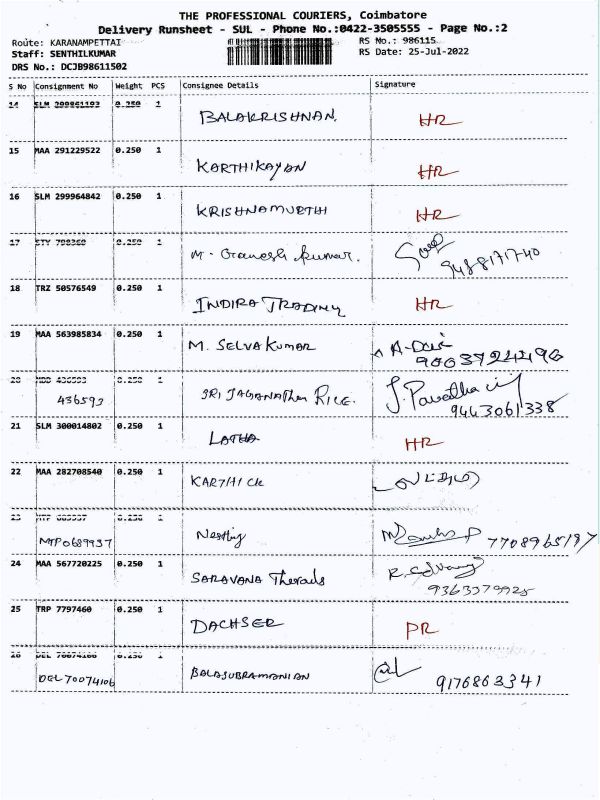 THE PROFESSIONAL COURIERS, Coimbatore
Delivery Runsheet - SUL - Phone No.:0422-3505555 - Page No.:2
Route: KARANAMPETTAI RS No.: 986115
Staff: SENTHILKUMAR RS Date: 25-Jul-2022
DRS No.: DCJB98611502
S No Consignment No Weight PCS Consignee Details Signature
14 SLM 299861193 0.250 1 BALAKRISHNAN. HR
15 MAA 291229522 0.250 1 KARTHIKAYAN HR
16 SLM 299964842 0.250 1 KRISHNAMURTHI HR
17 0.250 1 M. Ganesh Kumar. 9488171740
18 TRZ 50576549 0.250 1 INDIRA TRADING HR
19 MAA 563985834 0.250 1 M. SELVAKUMAR
20 0.250 1 SRI JAGANATHA RICE.
436593 9443061338
21 SLM 300014802 0.250 1 LATHA HR
22 MAA 282708540 0.250 1 KARTHICK
23 0.250 1
MTP0689937 7708965197
24 MAA 567720225 0.250 1 SARAVANA Threads
25 TRP 7797460 0.250 1 DACHSER PR
26 0.250 1 BALASUBRAMANIAN
DEL70074106 9176863341